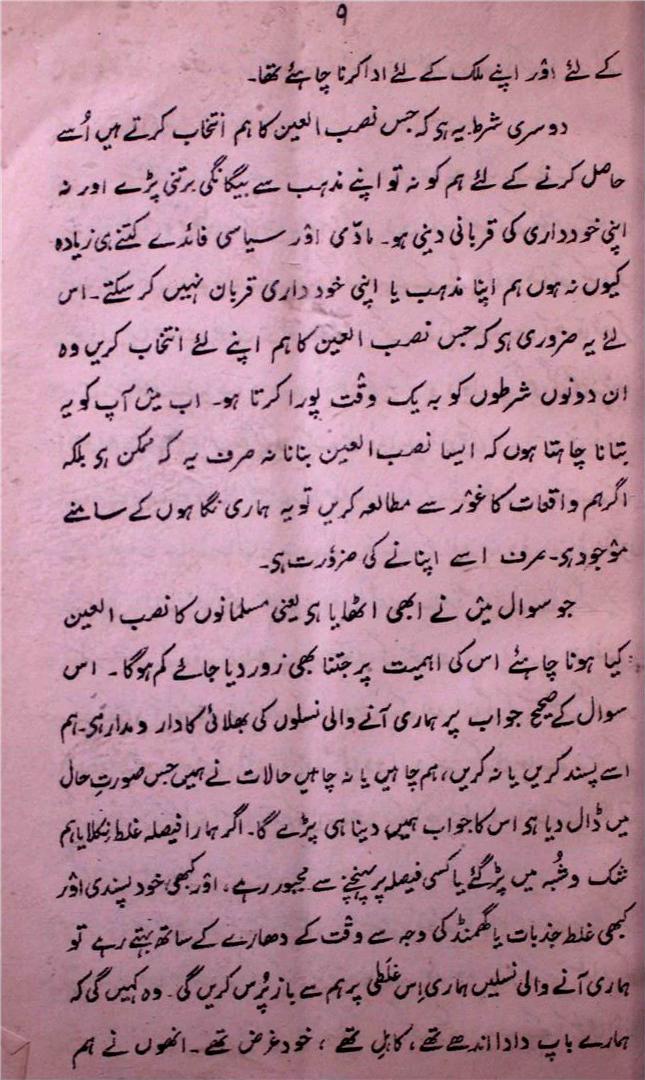 ۹
کے لئے اور اپنے ملک کے لئے ادا کرنا چاہئے تھا۔
دوسری شرط یہ ہی کہ جس نصب العین کا ہم انتخاب کرتے ہیں اُسے
حاصل کرنے کے لئے ہم کو نہ تو اپنے مذہب سے بیگانگی برتنی پڑے اور نہ
اپنی خودداری کی قربانی دینی ہو۔ مادّی اور سیاسی فائدے کتنے ہی زیادہ
کیوں نہ ہوں ہم اپنا مذہب یا اپنی خودداری قربان نہیں کر سکتے۔ اس
لئے یہ ضروری ہی کہ جس نصب العین کا ہم اپنے لئے انتخاب کریں وہ
ان دونوں شرطوں کو بہ یک وقت پورا کرتا ہو۔ اب میں آپ کو یہ
بتانا چاہتا ہوں کہ ایسا نصب العین بنانا نہ صرف یہ کہ ممکن ہی بلکہ
اگر ہم واقعات کا غور سے مطالعہ کریں تو یہ ہماری نگاہوں کے سامنے
موجود ہی۔ صرف اسے اپنانے کی ضرورت ہی۔
جو سوال میں نے ابھی اٹھایا ہی یعنی مسلمانوں کا نصب العین
کیا ہونا چاہئے اس کی اہمیت پر جتنا بھی زور دیا جائے کم ہوگا۔ اس
سوال کے صحیح جواب پر ہماری آنے والی نسلوں کی بھلائی کا دار و مدار ہی۔ ہم
اسے پسند کریں یا نہ کریں، ہم چاہیں یا نہ چاہیں حالات نے ہمیں جس صورتِ حال
میں ڈال دیا ہی اس کا جواب ہمیں دینا ہی پڑے گا۔ اگر ہمارا فیصلہ غلط نکلا یا ہم
شک و شُبہ میں پڑ گئے یا کسی فیصلہ پر پہنچنے سے مجبور رہے، اور کبھی خود پسندی اور
کبھی غلط جذبات یا گھمنڈ کی وجہ سے وقت کے دھارے کے ساتھ بہتے رہے تو
ہماری آنے والی نسلیں ہماری اِس غلَطی پر ہم سے باز پُرس کریں گی۔ وہ کہیں گی کہ
ہمارے باپ دادا اندھے تھے، کاہل تھے، خود غرض تھے۔ انھوں نے ہم